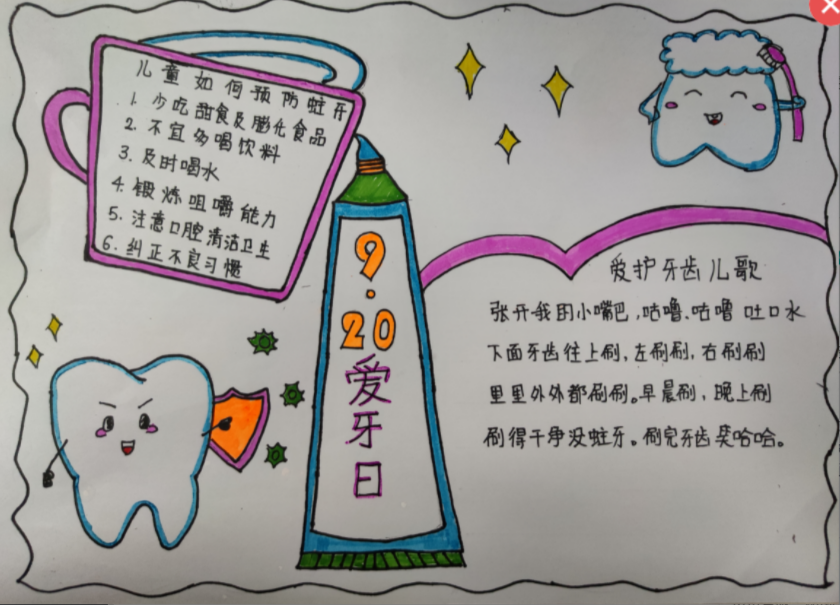 儿童如何预防蛀牙
1. 少吃甜食及膨化食品
2. 不宜多喝饮料
3. 及时喝水
4. 锻炼咀嚼能力
5. 注意口腔清洁卫生
6. 纠正不良习惯
9.20
爱牙日
爱护牙齿儿歌
张开我的小嘴巴,咕噜、咕噜吐口水
下面牙齿往上刷,左刷刷,右刷刷
里里外外都刷刷。早晨刷,晚上刷
刷得干净没蛀牙。刷完牙齿笑哈哈。